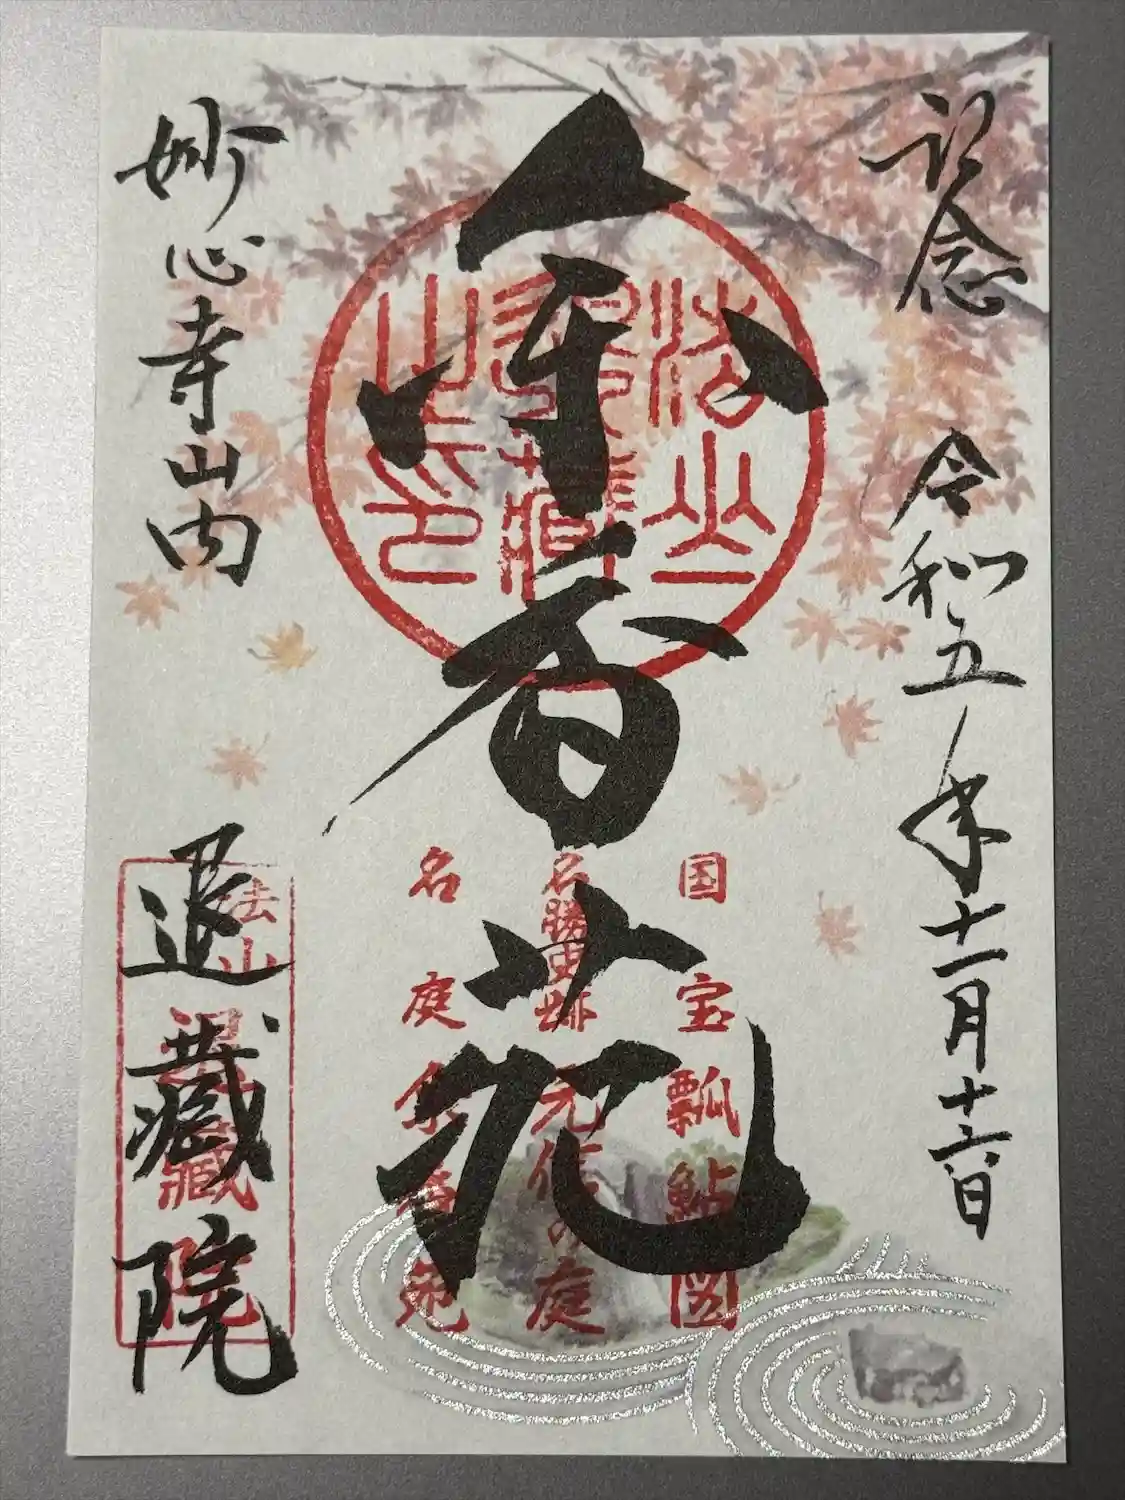 記念 令和五年十一月十六日
余香苑
法山
退藏
之印
国宝 瓢鮎図
名勝史跡 元信の庭
名庭 余香苑
妙心寺山内 退藏院
法山
退藏院